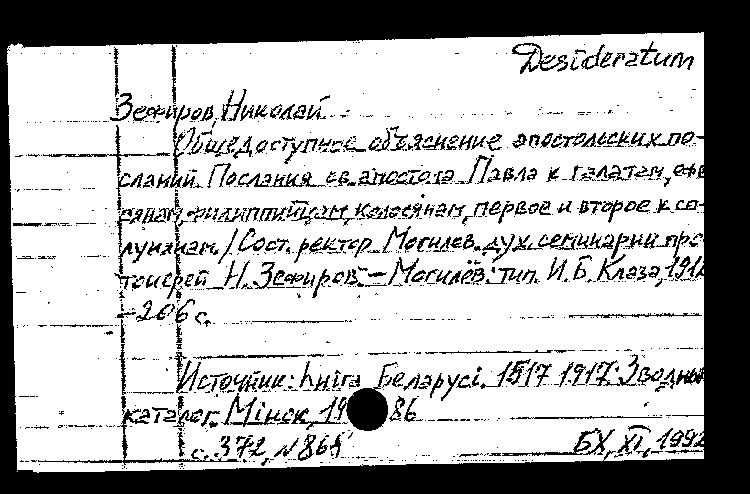 Desideratum
Зефиров, Николай
Общедоступное объяснение апостольских по-
сланий. Послания св. апостола Павла к галатам,
филиппийцам, колосянам, первое и второе к со-
лунянам. / Сост. ректор Могилев. дух. семинарии про-
тоиерей Н. Зефиров. – Могилёв: тип. И. Б. Клаза,
– 206 с.
Источник: Кніга Беларусі. 1517 1917: Зводны
каталог. Мінск, 1986
с. 372, № 868
БХ, XI, 1992